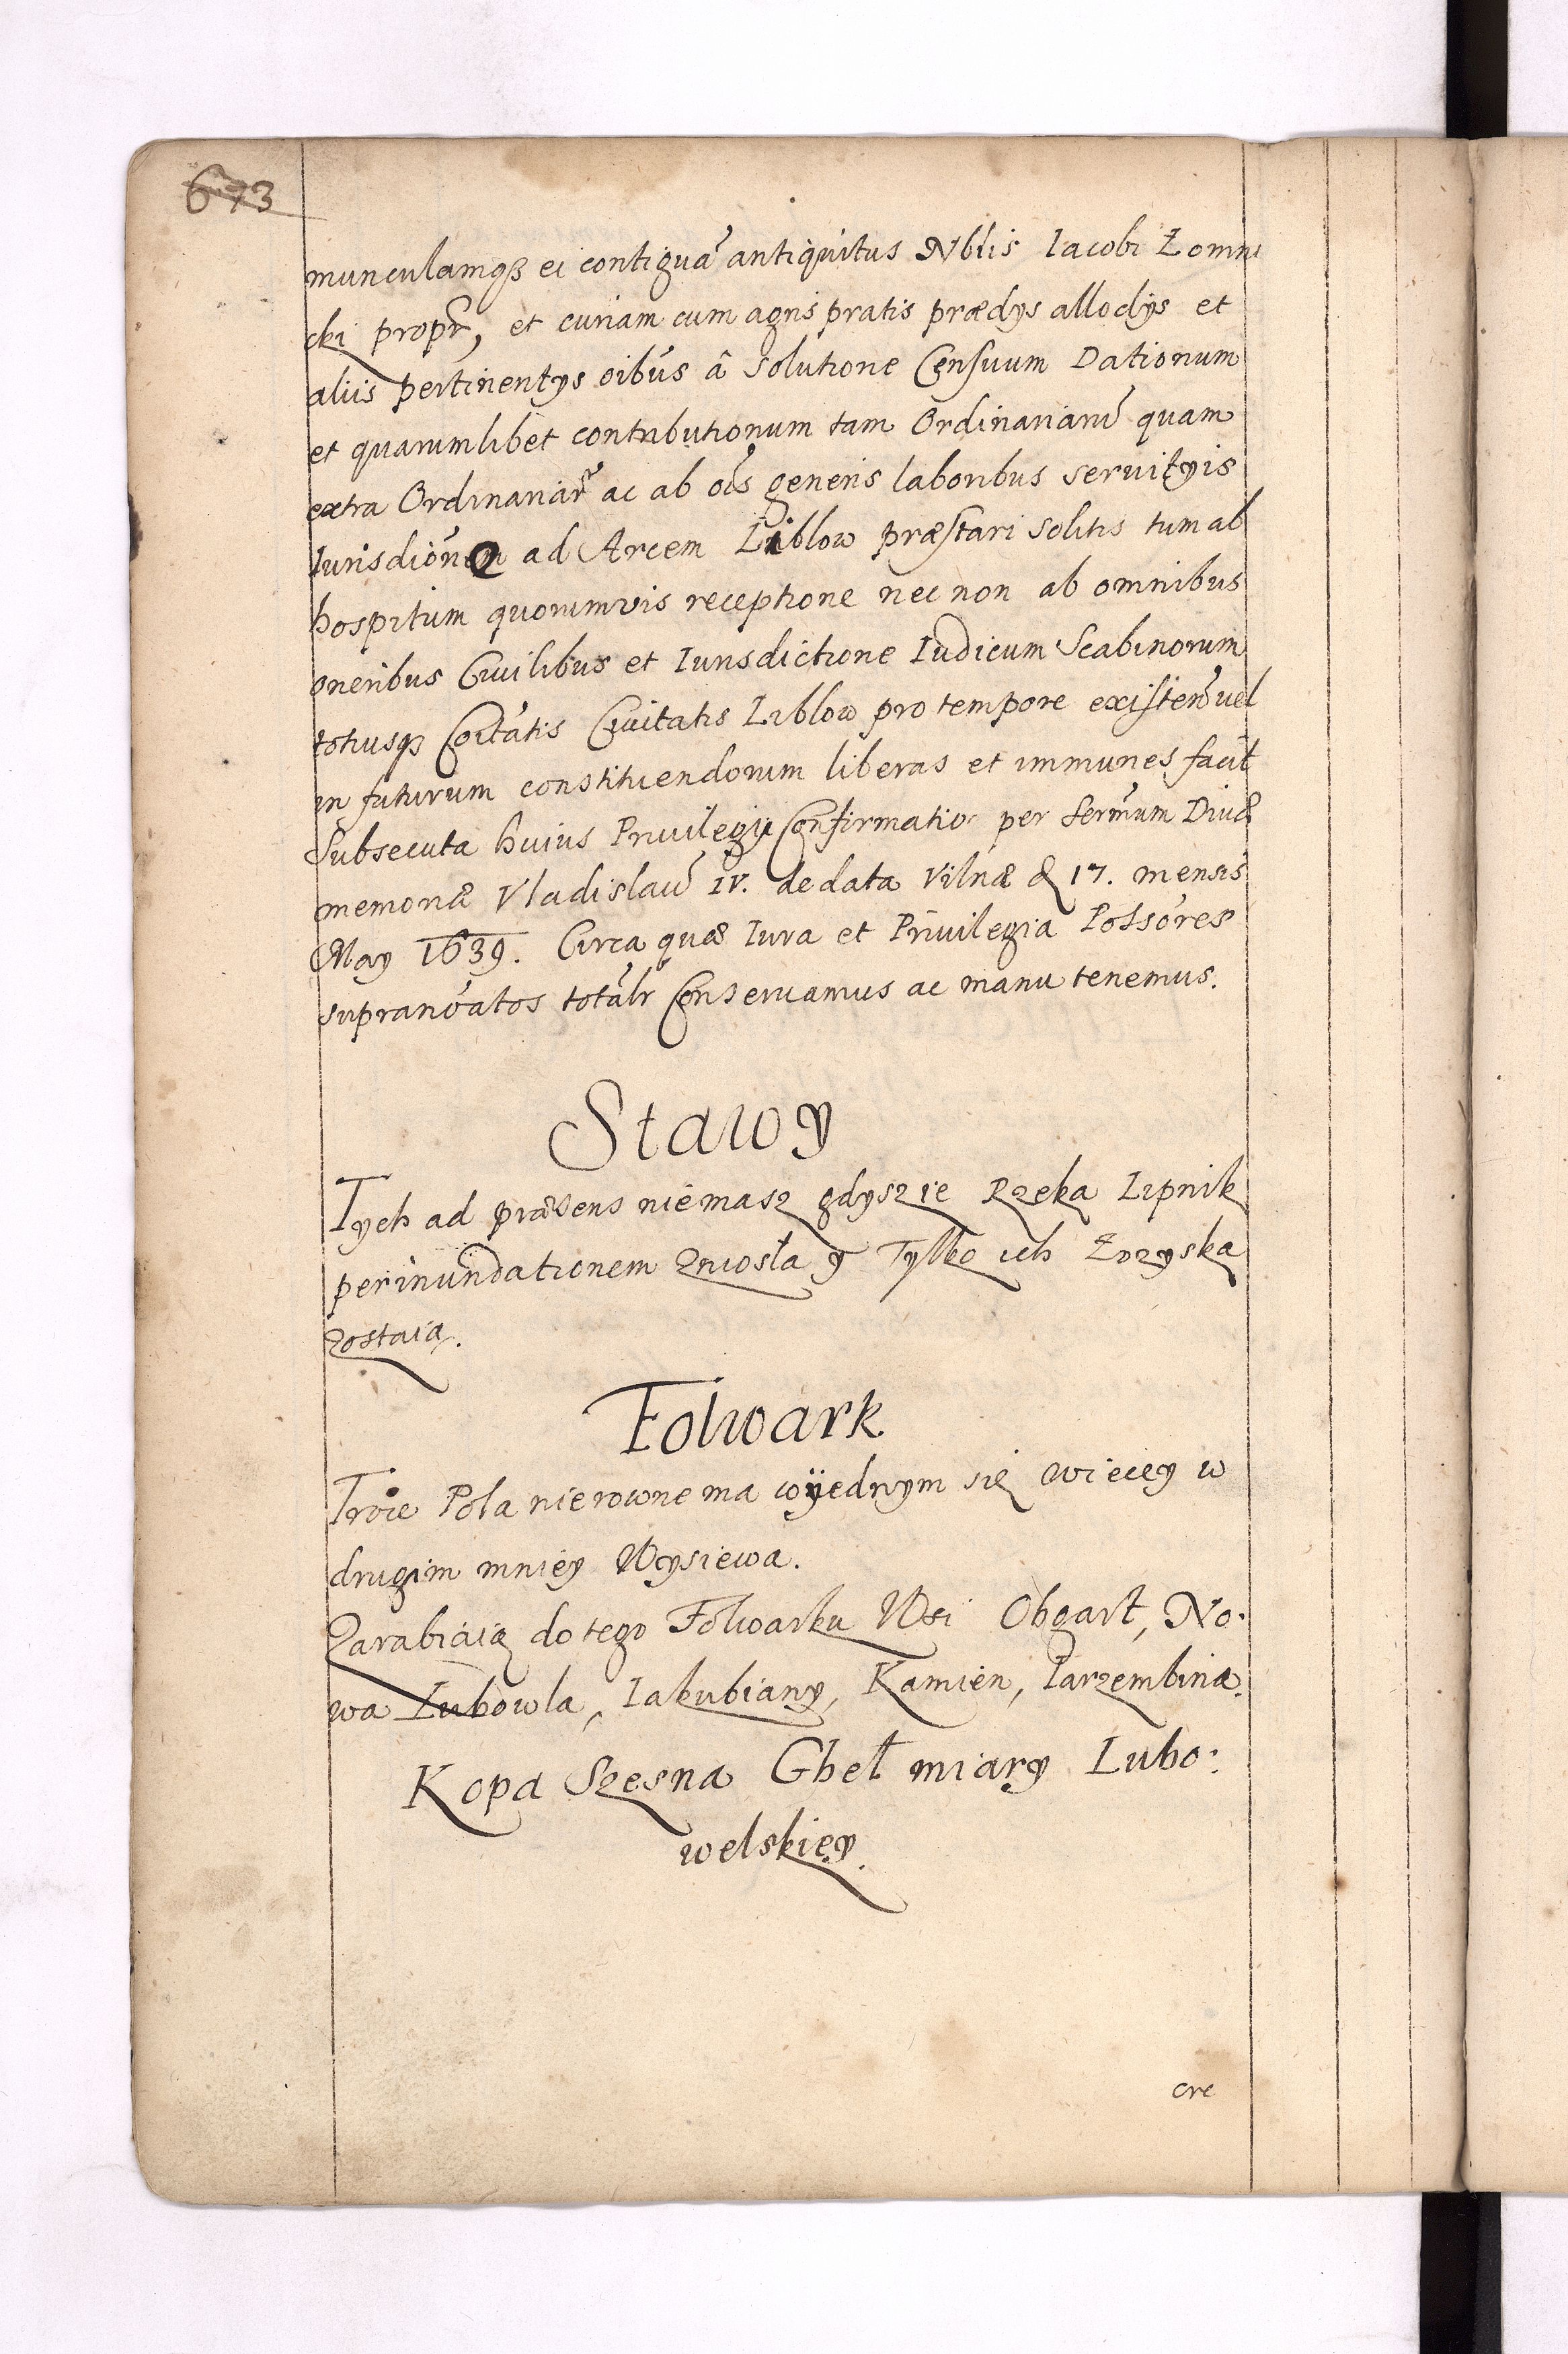 673
munculamqꝫ ei contiguã antiquitus Nblis Iacobi Łomni
cki propr, et curiam cum agris pratis prædys allodys et
aliis pertinentys oibus â solutione Censuum Dationum
et quarumlibet contributionum tam Ordinariarũ quam
extra Ordinariar̃ ac ab ois generis laboribus seruityis
Iurisdione ad Arcem Liblow præstari solitis tum ab
hospitum quorumvis receptione nec non ab omnibus
oneribus Ciuilibus et Iurisdictione Iudicum Scabinorum
totiusqꝫ Coitatis Ciuitatis Liblow pro tempore existen̄ vel
in futurum constituendorum liberas et immunes facit
Subsecuta huius Priuilegij Confirmatio per Sermum Diuæ
memoriæ Vladislaũ IV. de data Vilnæ d 17. mensis
May 1639. Circa quæ Iura et Priuilegia Possores
supranoatos totalr Conseruamus ac manu tenemus.
Stawy
Tych ad præsens niemasz gdysz ie Rzeka Lipnik
per inundationem zniosła y Tylko ich Łozyska
zostaią.
Folwark
Troie Pola nierowne ma w ÿednym się wiecey w
drugim mniey Wysiewa.
Zarabiaią do tego Folwarku Wsi Obgart, No.
wa Lubowla, Iakubiany, Kamien, Iarzembina.
Kopa Szesna Gbeł miary Lubo:
welskiey.
cre